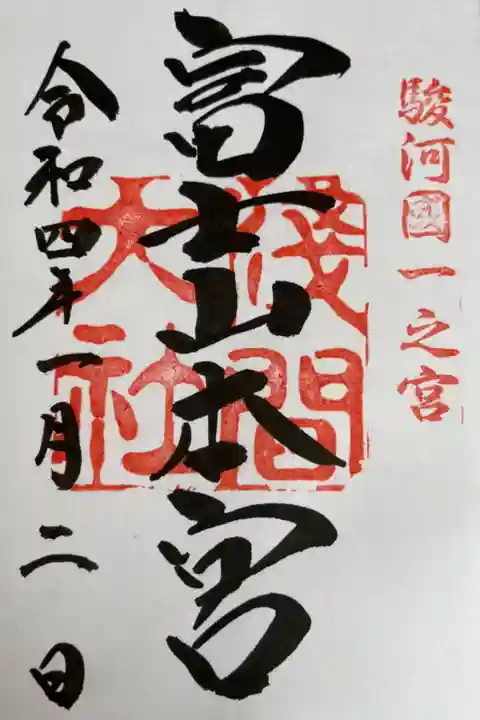 駿河國一之宮
富士山本宮
淺間
大社
令和四年一月二日